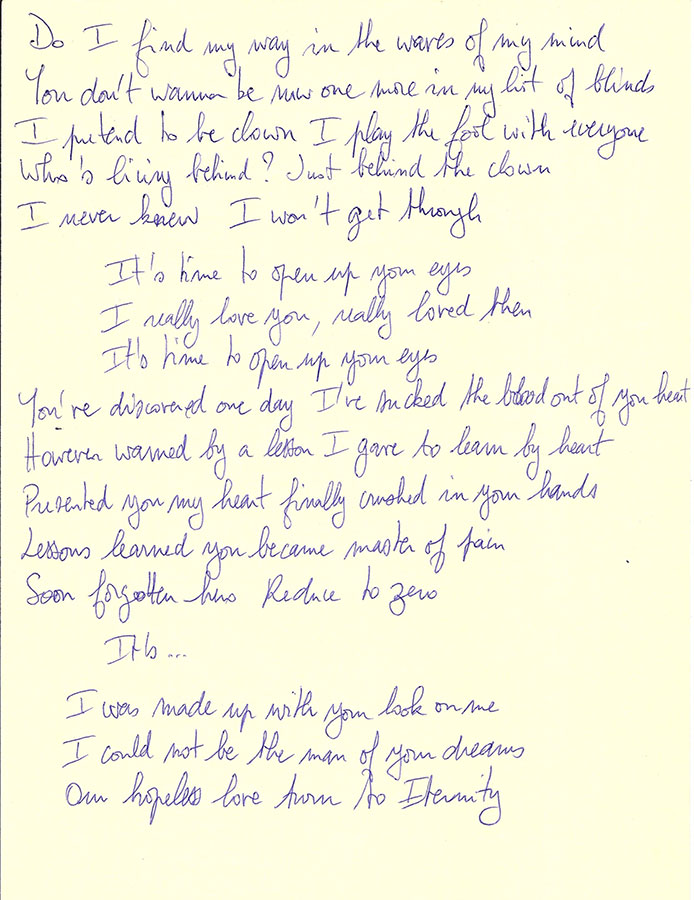 Do I find my way in the waves of my mind
You don't wanna be now one more in my list of blinds
I pretend to be clown I play the fool with everyone
Who's living behind? Just behind the clown
I never knew I won't get through
It's time to open up your eyes
I really love you, really loved then
It's time to open up your eyes
You're discovered one day I've sucked the blood out of you heart
However warned by a lesson I gave to learn by heart
Presented you my heart finally crushed in your hands
Lessons learned you became master of pain
Soon forgotten Reduce to zero
It's...
I was made up with your look on me
I could not be the man of your dreams
Our hopeless love turn to Iternity